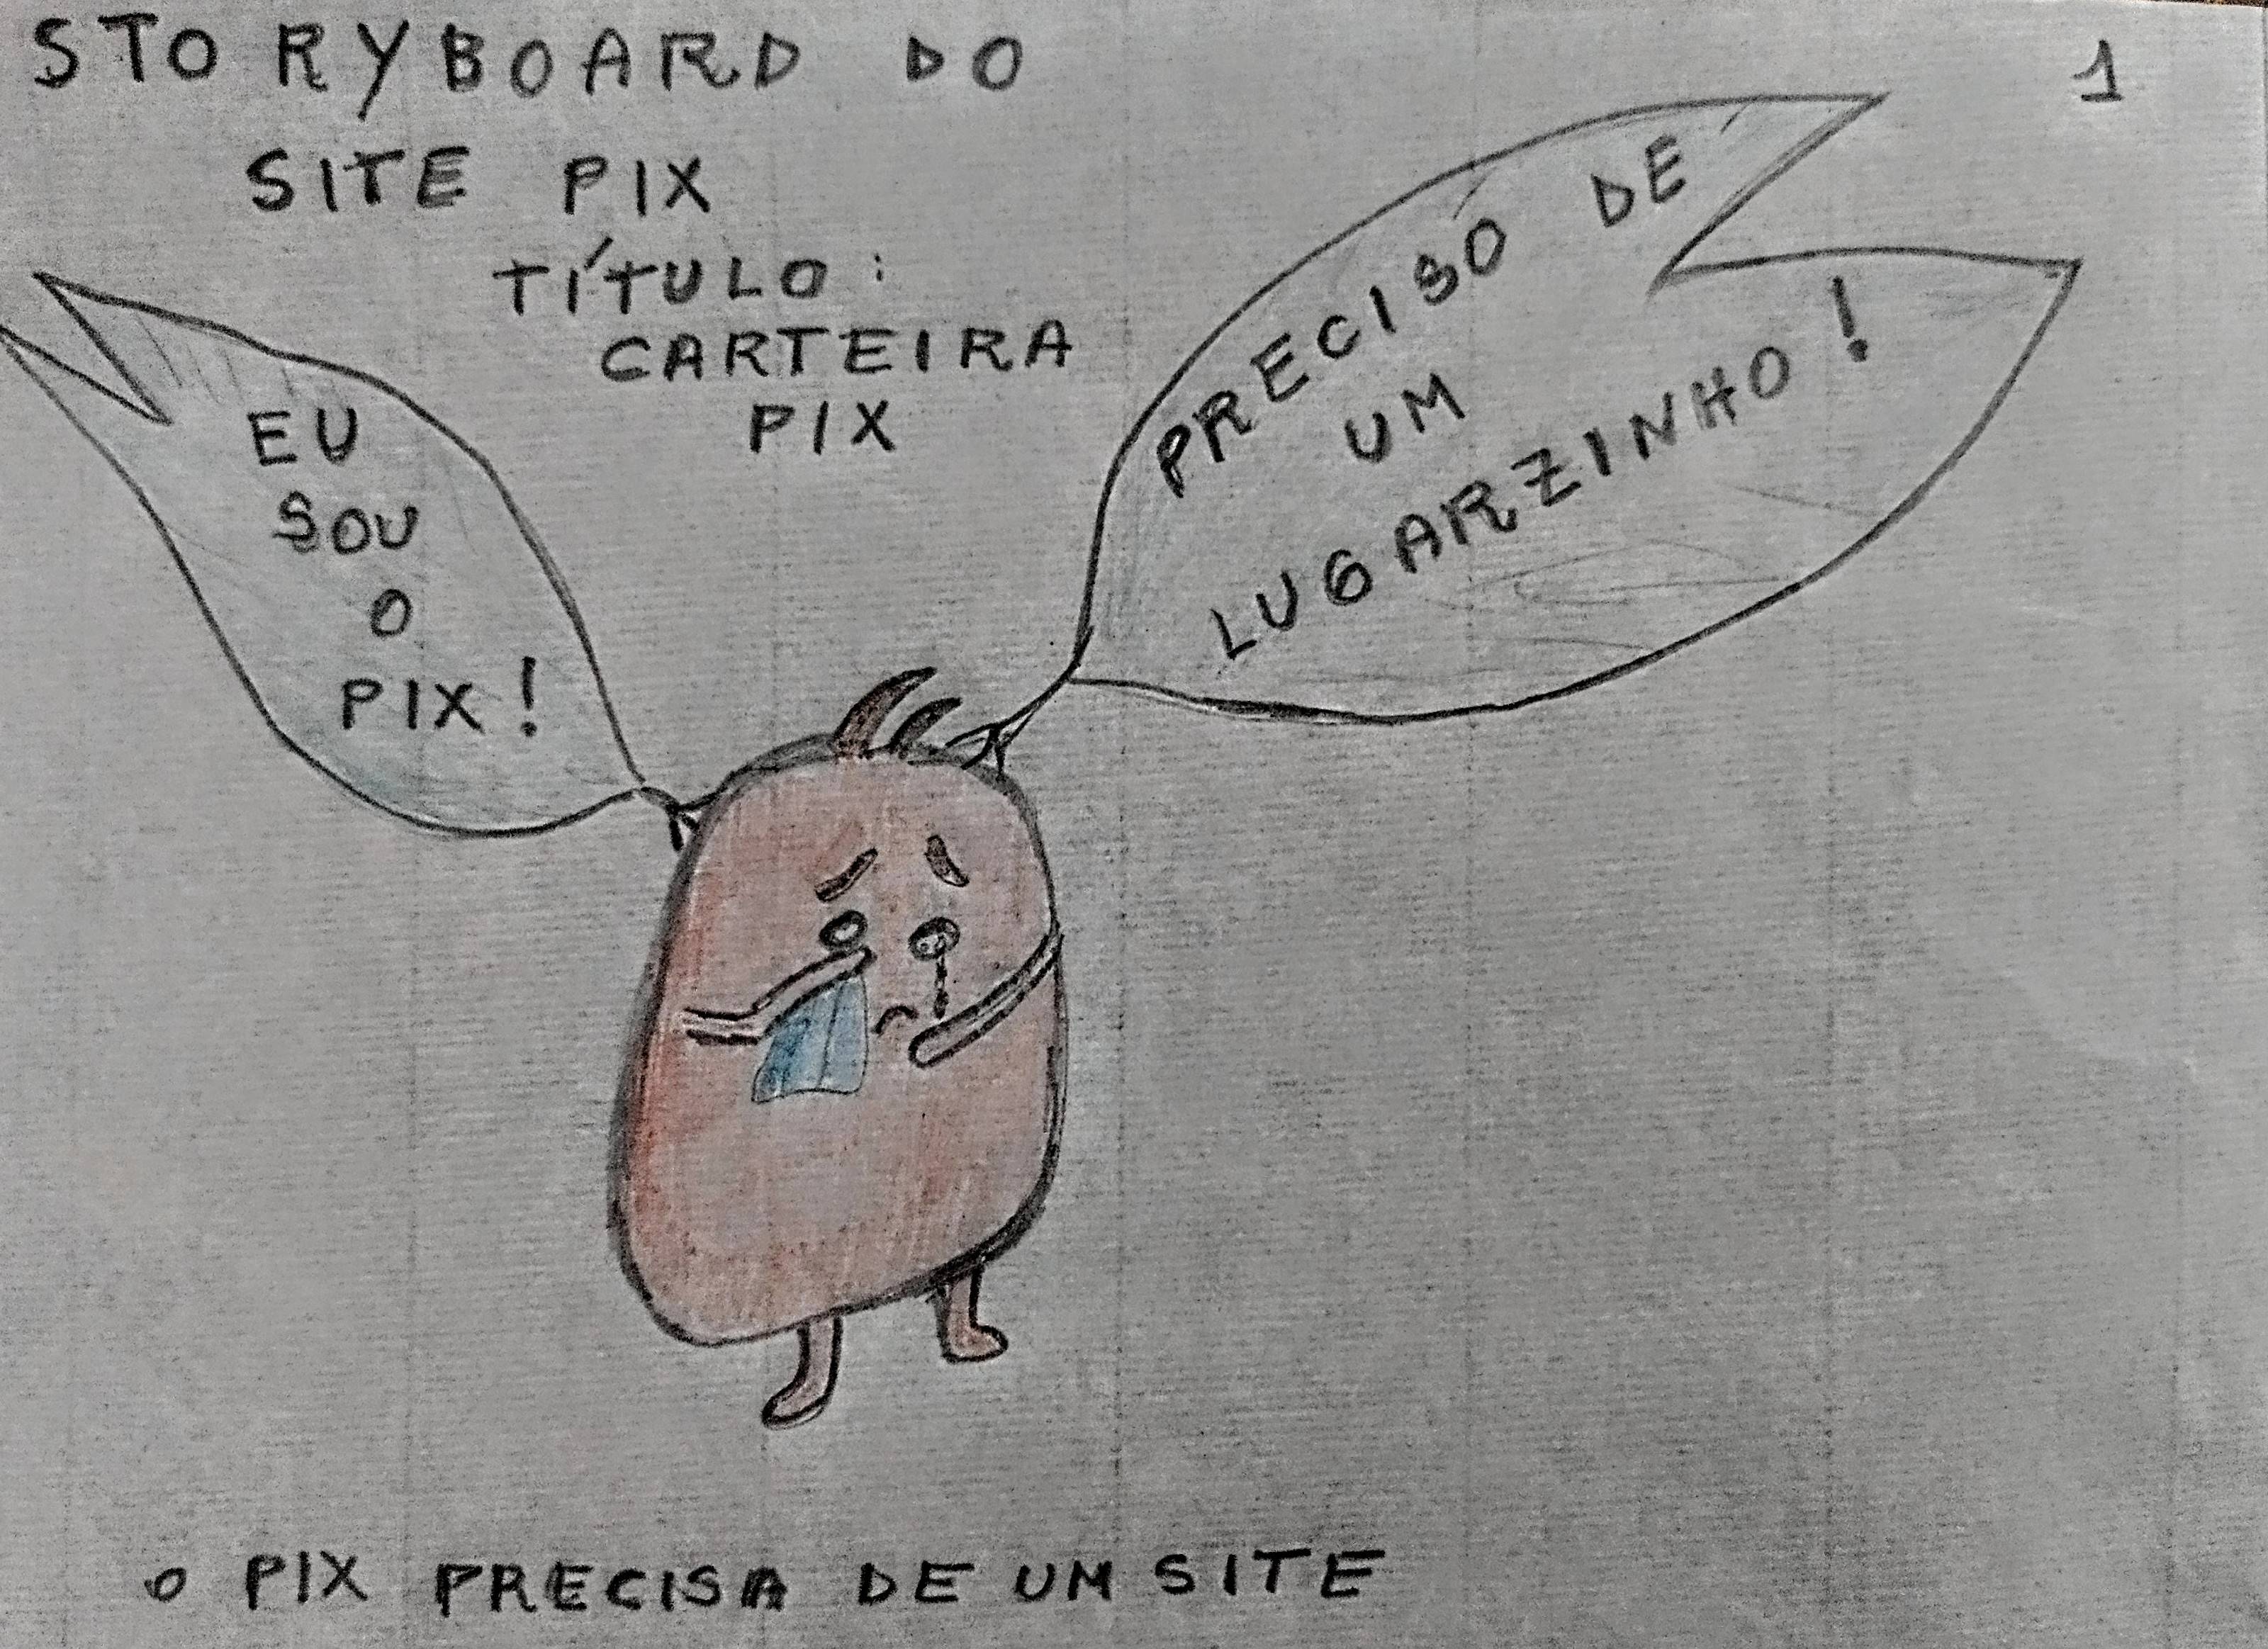 STORYBOARD DO
SITE PIX
TÍTULO:
CARTEIRA
PIX
1
EU
SOU
O
PIX!
PRECISO DE
UM
LUGARZINHO!
O PIX PRECISA DE UM SITE